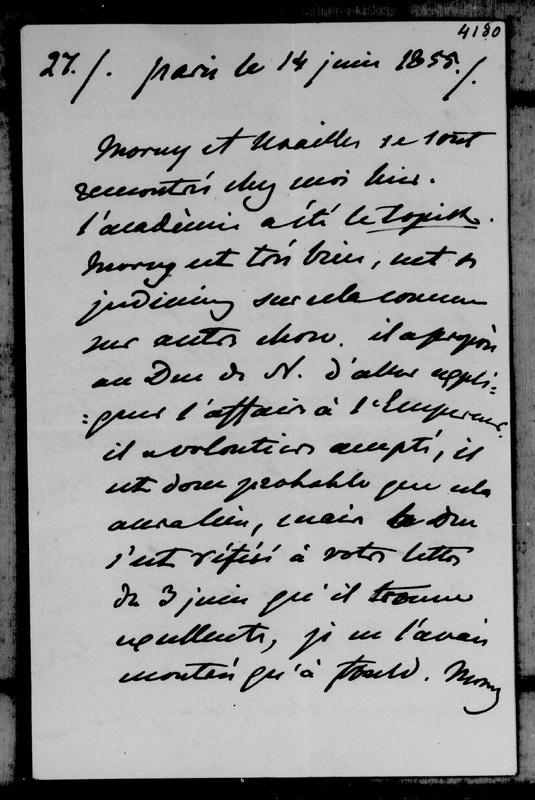 4180
27./. paris le 14 juin 1855./.
Morny et Noailles se sont
rencontrés chez moi hier.
l'académie a été le topick.
Morny est très bien, net &
judicieux sur cela comme
sur autre chose. il a proposé
au Duc de N. d'aller expli=
=quer l'affaire à l'Empereur.
il a volontiers accepté, il
est donc probable que cela
aura lieu, mais le Duc
s'est référé à votre lettre
du 3 juin qu'il trouve
excellente, je ne l'avais
montré qu'à Fould. Morny